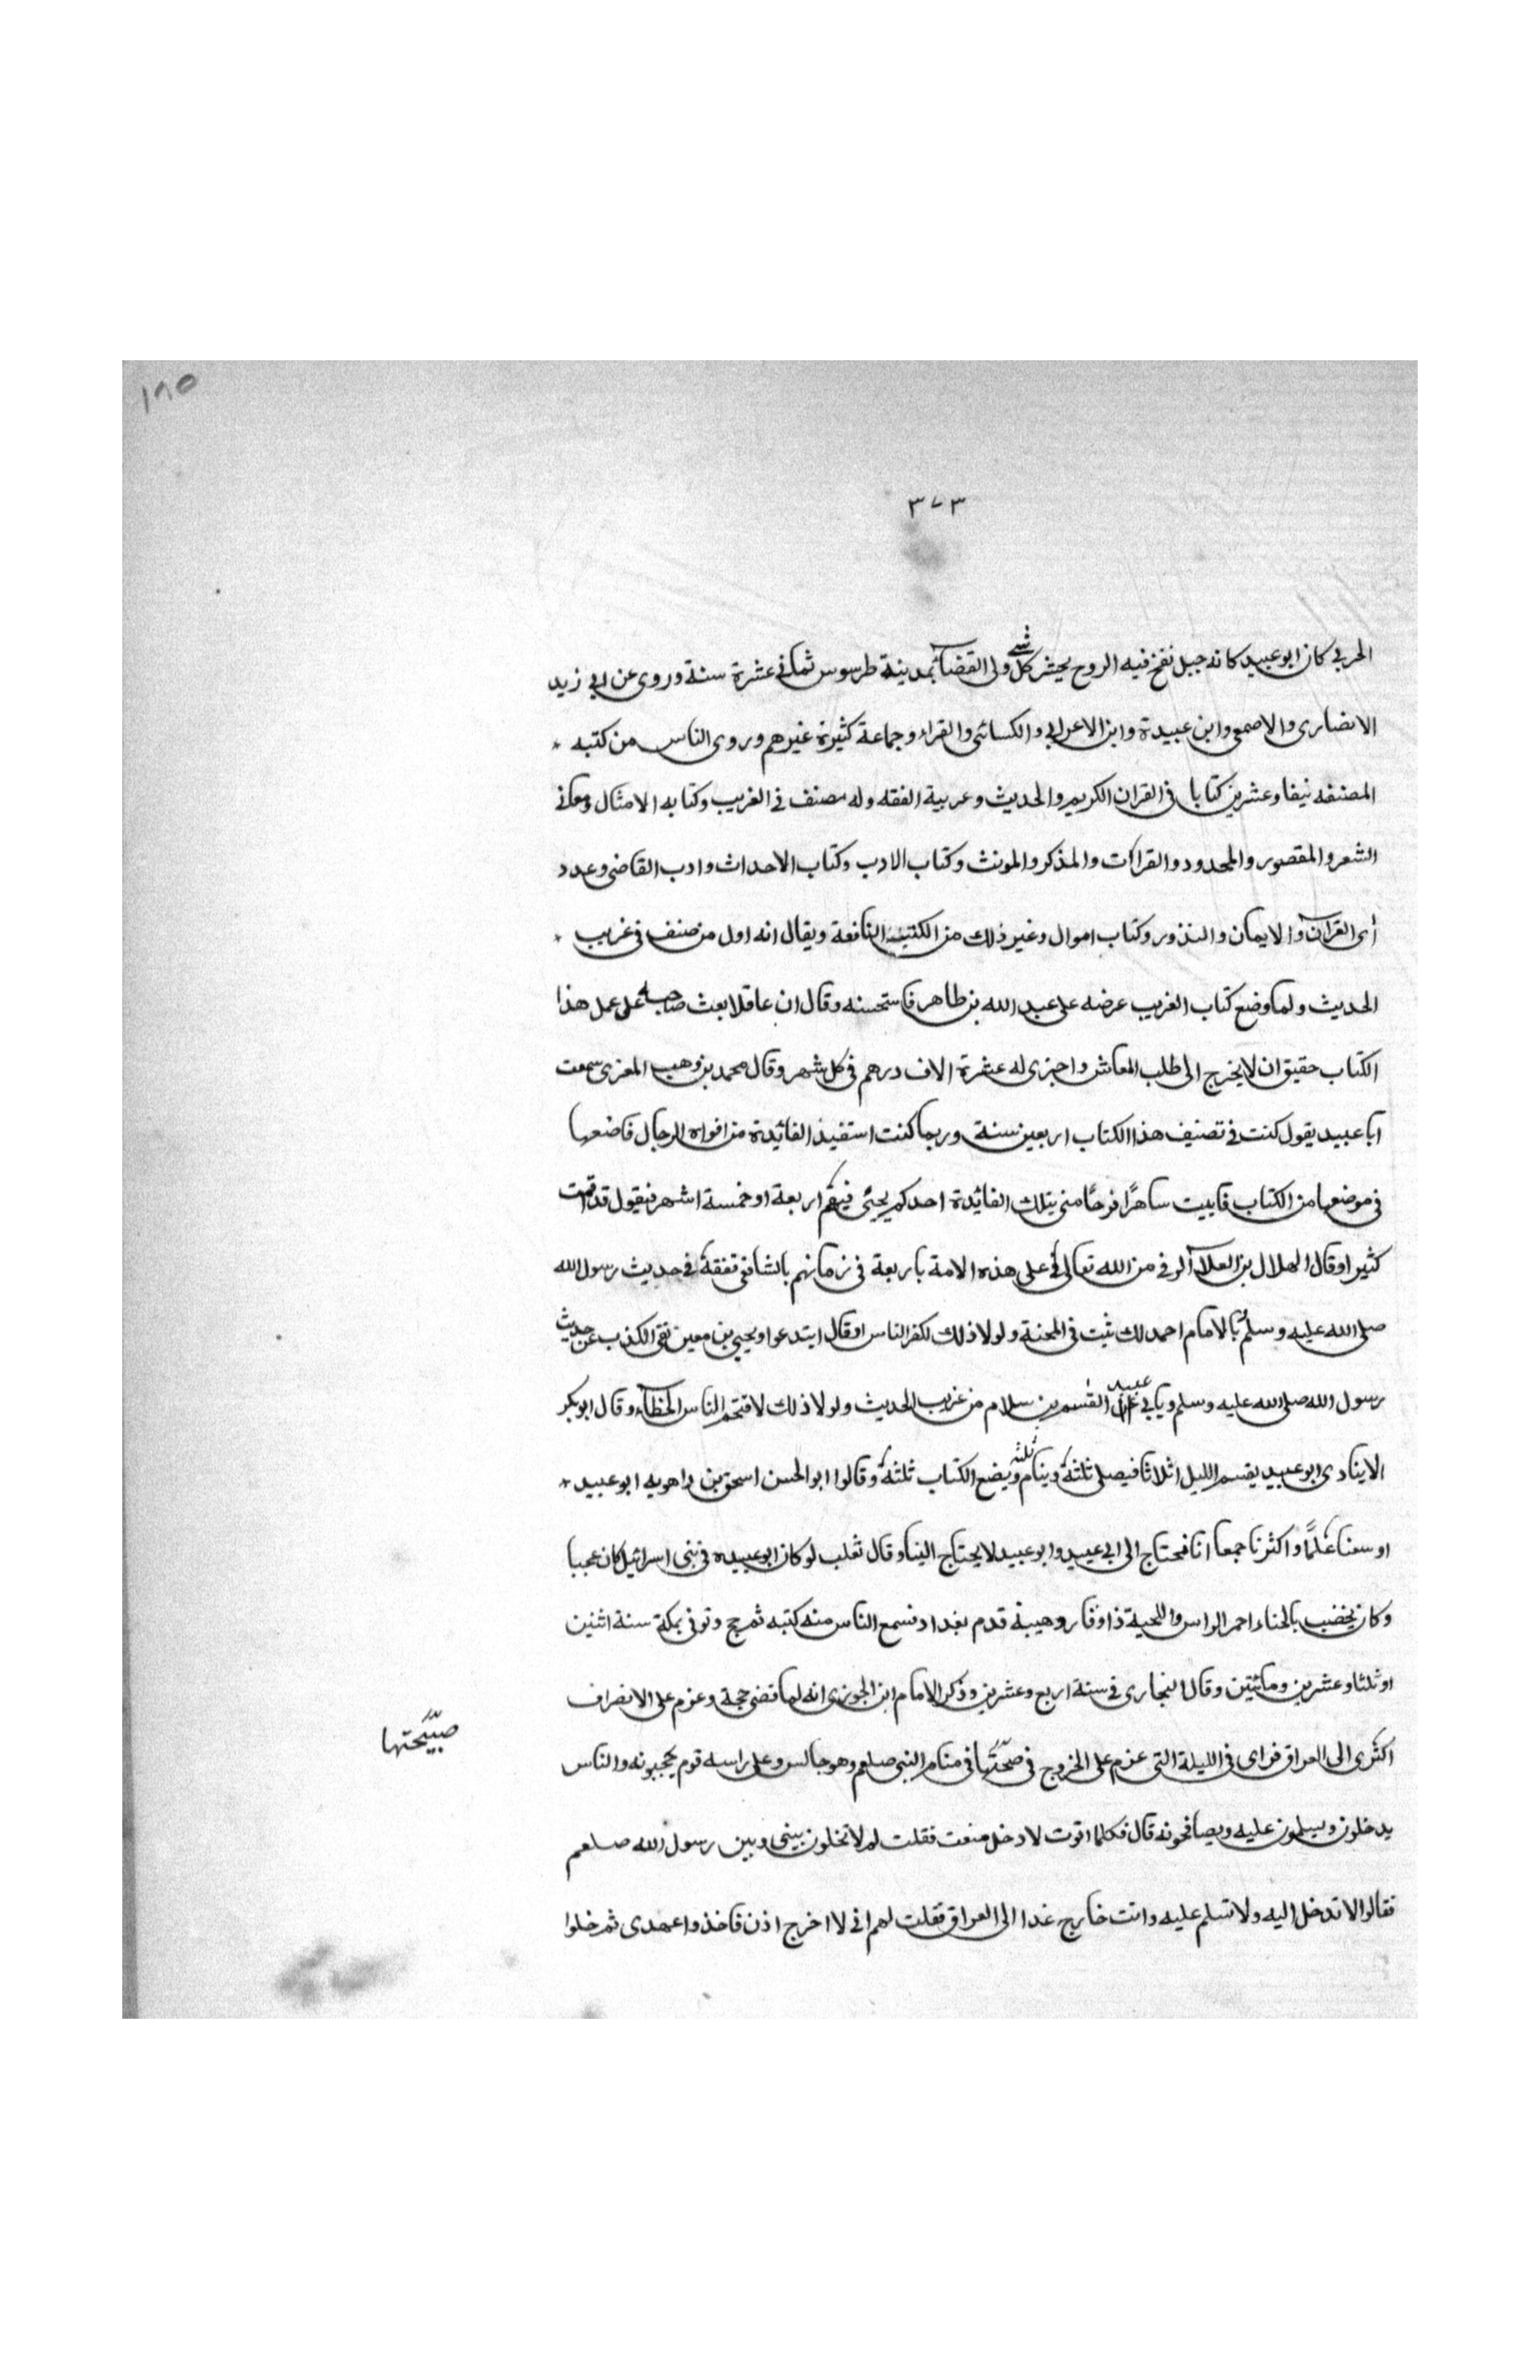 ١٨٥
٣٧٣
الحربي كان ابو عبيد كانه جبل نفخ فيه الروح يحشر كل شي ولى القضآ بمدينة طرسوس ثماني عشرة سنة وروى عن ابي زيد
الانضارى والاصمعي وابن عبيدة وابن الاعرابي والكسائى والقراء وجماعة كثيرة غيرهم وروى الناس من كتبه *
المصنفه نيفا وعشرين كتابا في القران الكريم والحديث وعربية الفقه وله مصنف في الغريب وكتابه الامثال ومعاني
الشعر والمقصور والمحدود والقرات والمذكر والمونث وكتاب الادب وكتاب الاحداث وادب القاضى وعدد
أى القرآن والايمان والنذور وكتاب اموال وغير ذلك من الكتب النافعة ويقال انه اول من صنف في غريب *
الحديث ولما وضع كتاب الغريب عرضه على عبد الله بن طاهر فاستحسنه وقال ان عاقلا بعث صاحبه على عمل هذا
الكتاب حقيق ان لا يخرج الى طلب المعاش واجرى له عشرة الاف درهم في كل شهر وقال محمد بن وهب المعزى سمعت
ابا عبيد يقول كنت في تصنيف هذا الكتاب اربعين سنة وربما كنت استفيد الفائيدة من افواه الرجال فاضعها
في موضعها من الكتاب فابيت ساهرًا فرحًا منى بتلك الفائيدة احدكم يجئى فيقم اربعة او خمسة اشهر فيقول قد اقمت
كثير او قال الهلال بن العلآ الرفى من الله تعالى على هذه الامة باربعة في زمانهم بالشافعى تفقة في حديث رسول الله
صلى الله عليه وسلم بالامام احمد لك ثبت في المحنة ولولا ذلك لكفر الناس او قال ابتدعوا ويحيى بن معين نفى الكذب عن حديث
رسول الله صلى الله عليه وسلم ويابي عبيد القسم بن سلام من غريب الحديث ولولا ذلك لاقتحم الناس الخطآء وقال ابو بكر
الاينادى ابو عبيد يقسم الليل اثلاثا فيصلى ثلثة وينام ثلثه ويضع الكتاب ثلثة وقالوا ابو الحسن اسحق بن راهويه ابو عبيد *
اوسعنا علمًا واكثرنا جمعا انا فحتاج الى ابي عبيد وابو عبيد لا يحتاج الينا وقال ثعلب لو كان ابو عبيده في بنى اسرائيل كان عجبا
وكان يخضب بالحناء احمر الراس واللحية ذا وقار وهيبة قدم بغداد فسمع الناس منه كتبه ثم حج وتوفى بمكة سنة اثنين
او ثلثا وعشرين ومائيتين وقال البخارى في سنة اربع وعشرين وذكر الامام ابن الجوزى انه لما قضى حجة وعزم على الانصراف
اكثرى الى العراق فراى في الليلة التى عزم على الخروج في صحّتها في منام النبى صلعم وهو جالس وعلى راسه قوم يحجبونه والناس
صبيّحتها
يدخلون ويسلمون عليه ويصافحونه قال فكلما اتوت لادخل منعت فقلت لم لا تخلون بينى وبين رسول الله صلعم
فقالوا لا تدخل اليه ولا تسلم عليه وانت خارج غدا الى العراق فقلت لهم اني لا اخرج اذن فاخذوا عهدى ثم خلوا